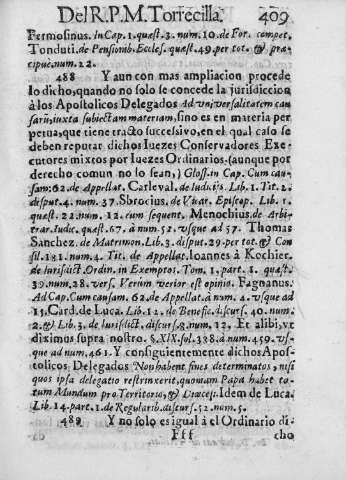 Del R. P. M. Torrecilla. 409
Fermosinus. in Cap. 1. quæst. 3. num. 10. de For. compet.
Tonduti. de Pensionib. Eccles. quæst. 49. per tot. & præ-
cipuè, num. 22.
488 Y aun con mas ampliacion procede
lo dicho, quando no solo se concede la jurisdiccion
à los Apostolicos Delegados Ad vniversalitatem cau
sarũ, iuxta subiectam materiam, sino es en materia per
petua, que tiene tracto successivo, en el qual caso se
deben reputar dichos Iuezes Conservadores Exe-
cutores mixtos por Iuezes Ordinarios (aunque por
derecho comun no lo sean,) Gloss. in Cap. Cum cau-
sam: 62. de Appellat. Carleval. de Iudicijs Lib. 1. Tit. 2.
disput. 4. num. 37. Sbrocius, de Vicar. Episcop. Lib. 1.
quæst. 22. num. 12. cum sequent. Menochius, de Arbi-
trar. Iudic. quæst. 67. à num. 52. vsque ad 57. Thomas
Sanchez. de Matrimon. Lib. 3. disput. 29. per tot. & Con
sil. 181. num. 4. Tit. de Appellat. Ioannes à Kochier.
de Iurisdict. Ordin. in Exemptos. Tom. 1. part. 1. quæst.
39. num. 28. vers. Verùm verior est opinio. Fagnanus.
Ad Cap. Cum causam. 62. de Appellat. à num. 4. vsque ad
15. Card. de Luca. Lib. 12. de Benefic. discurs. 40. num.
2. & Lib. 3. de Iurisdict. discurs. 8. num. 12. Et alibi, vt
diximus supra nostro. §. XIX. sol. 338. à num. 459. vs-
que ad num. 461. Y consiguientemente dichos Apos-
tolicos Delegados Non habent fines determinatos, nisi
quos ipsa delegatio restrinxerit, quoniam Papa habet to-
tum Mundum pro Territorio, & Diœcesi. Idem de Luca.
Lib. 14. part. 1. de Regularib. discurs. 52. num. 5.
489 Y no solo es igual à el Ordinario di-
Fff cho